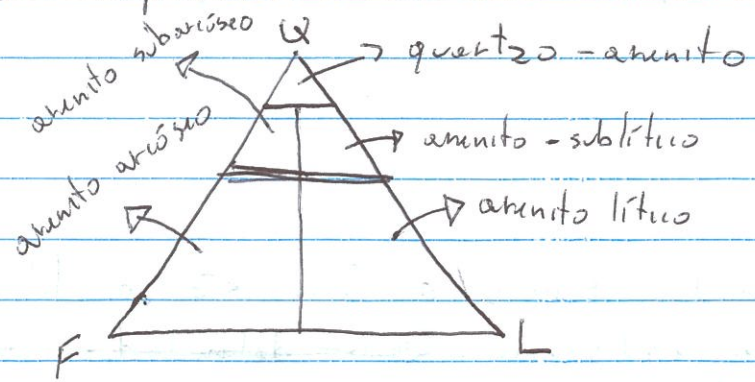 arenito subarcóseo
Q
quartzo-arenito
arenito arcóseo
arenito-sublítico
arenito lítico
F
L